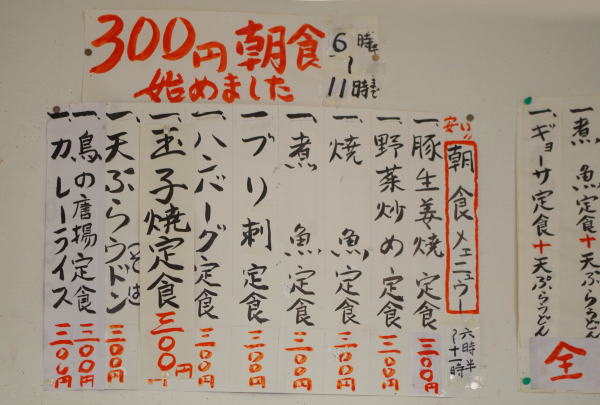 300円朝食
始めました
6時半
〜
11時まで
安い!!
朝食メニュウー
六時半〜十一時
一、豚生姜焼定食 三〇〇円
一、野菜炒め定食 三〇〇円
一、焼魚定食 三〇〇円
一、煮魚定食 三〇〇円
一、ブリ刺定食 三〇〇円
一、ハンバーグ定食 三〇〇円
一、玉子焼定食 三〇〇円
一、天ぷらウドン そば 三〇〇円
一、鳥の唐揚定食 三〇〇円
一、カレーライス 三〇〇円
一煮魚定食+天ぷらうどん
一、ギョーサ定食+天ぷらうどん
全